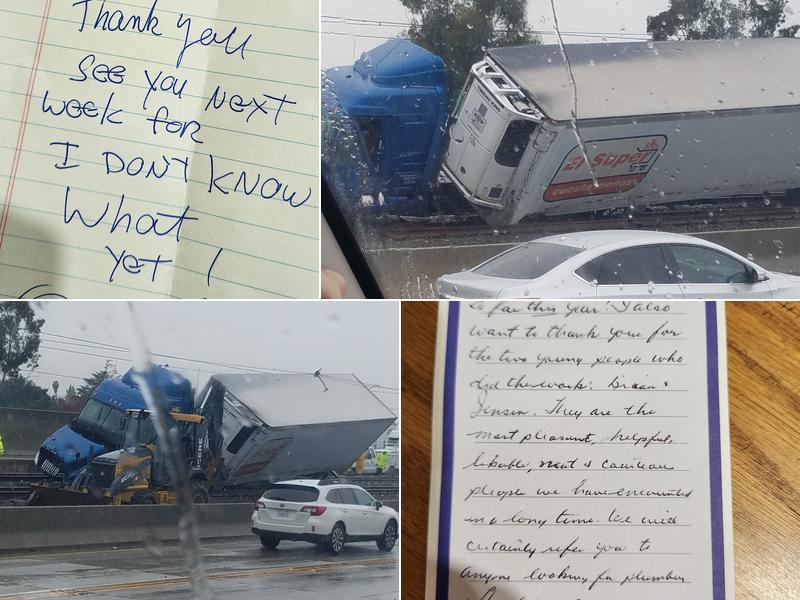 Thank you
See you Next
week for
I DON'T KNOW
What
yet !
El Super
cuesta menos
so far this year! I also
want to thank you for
the two young people who
did the work: Brian &
Jensen. They are the
most pleasant, helpful,
likable, neat & courteous
people we have encountered
in a long time. We will
certainly refer you to
anyone looking for plumbing